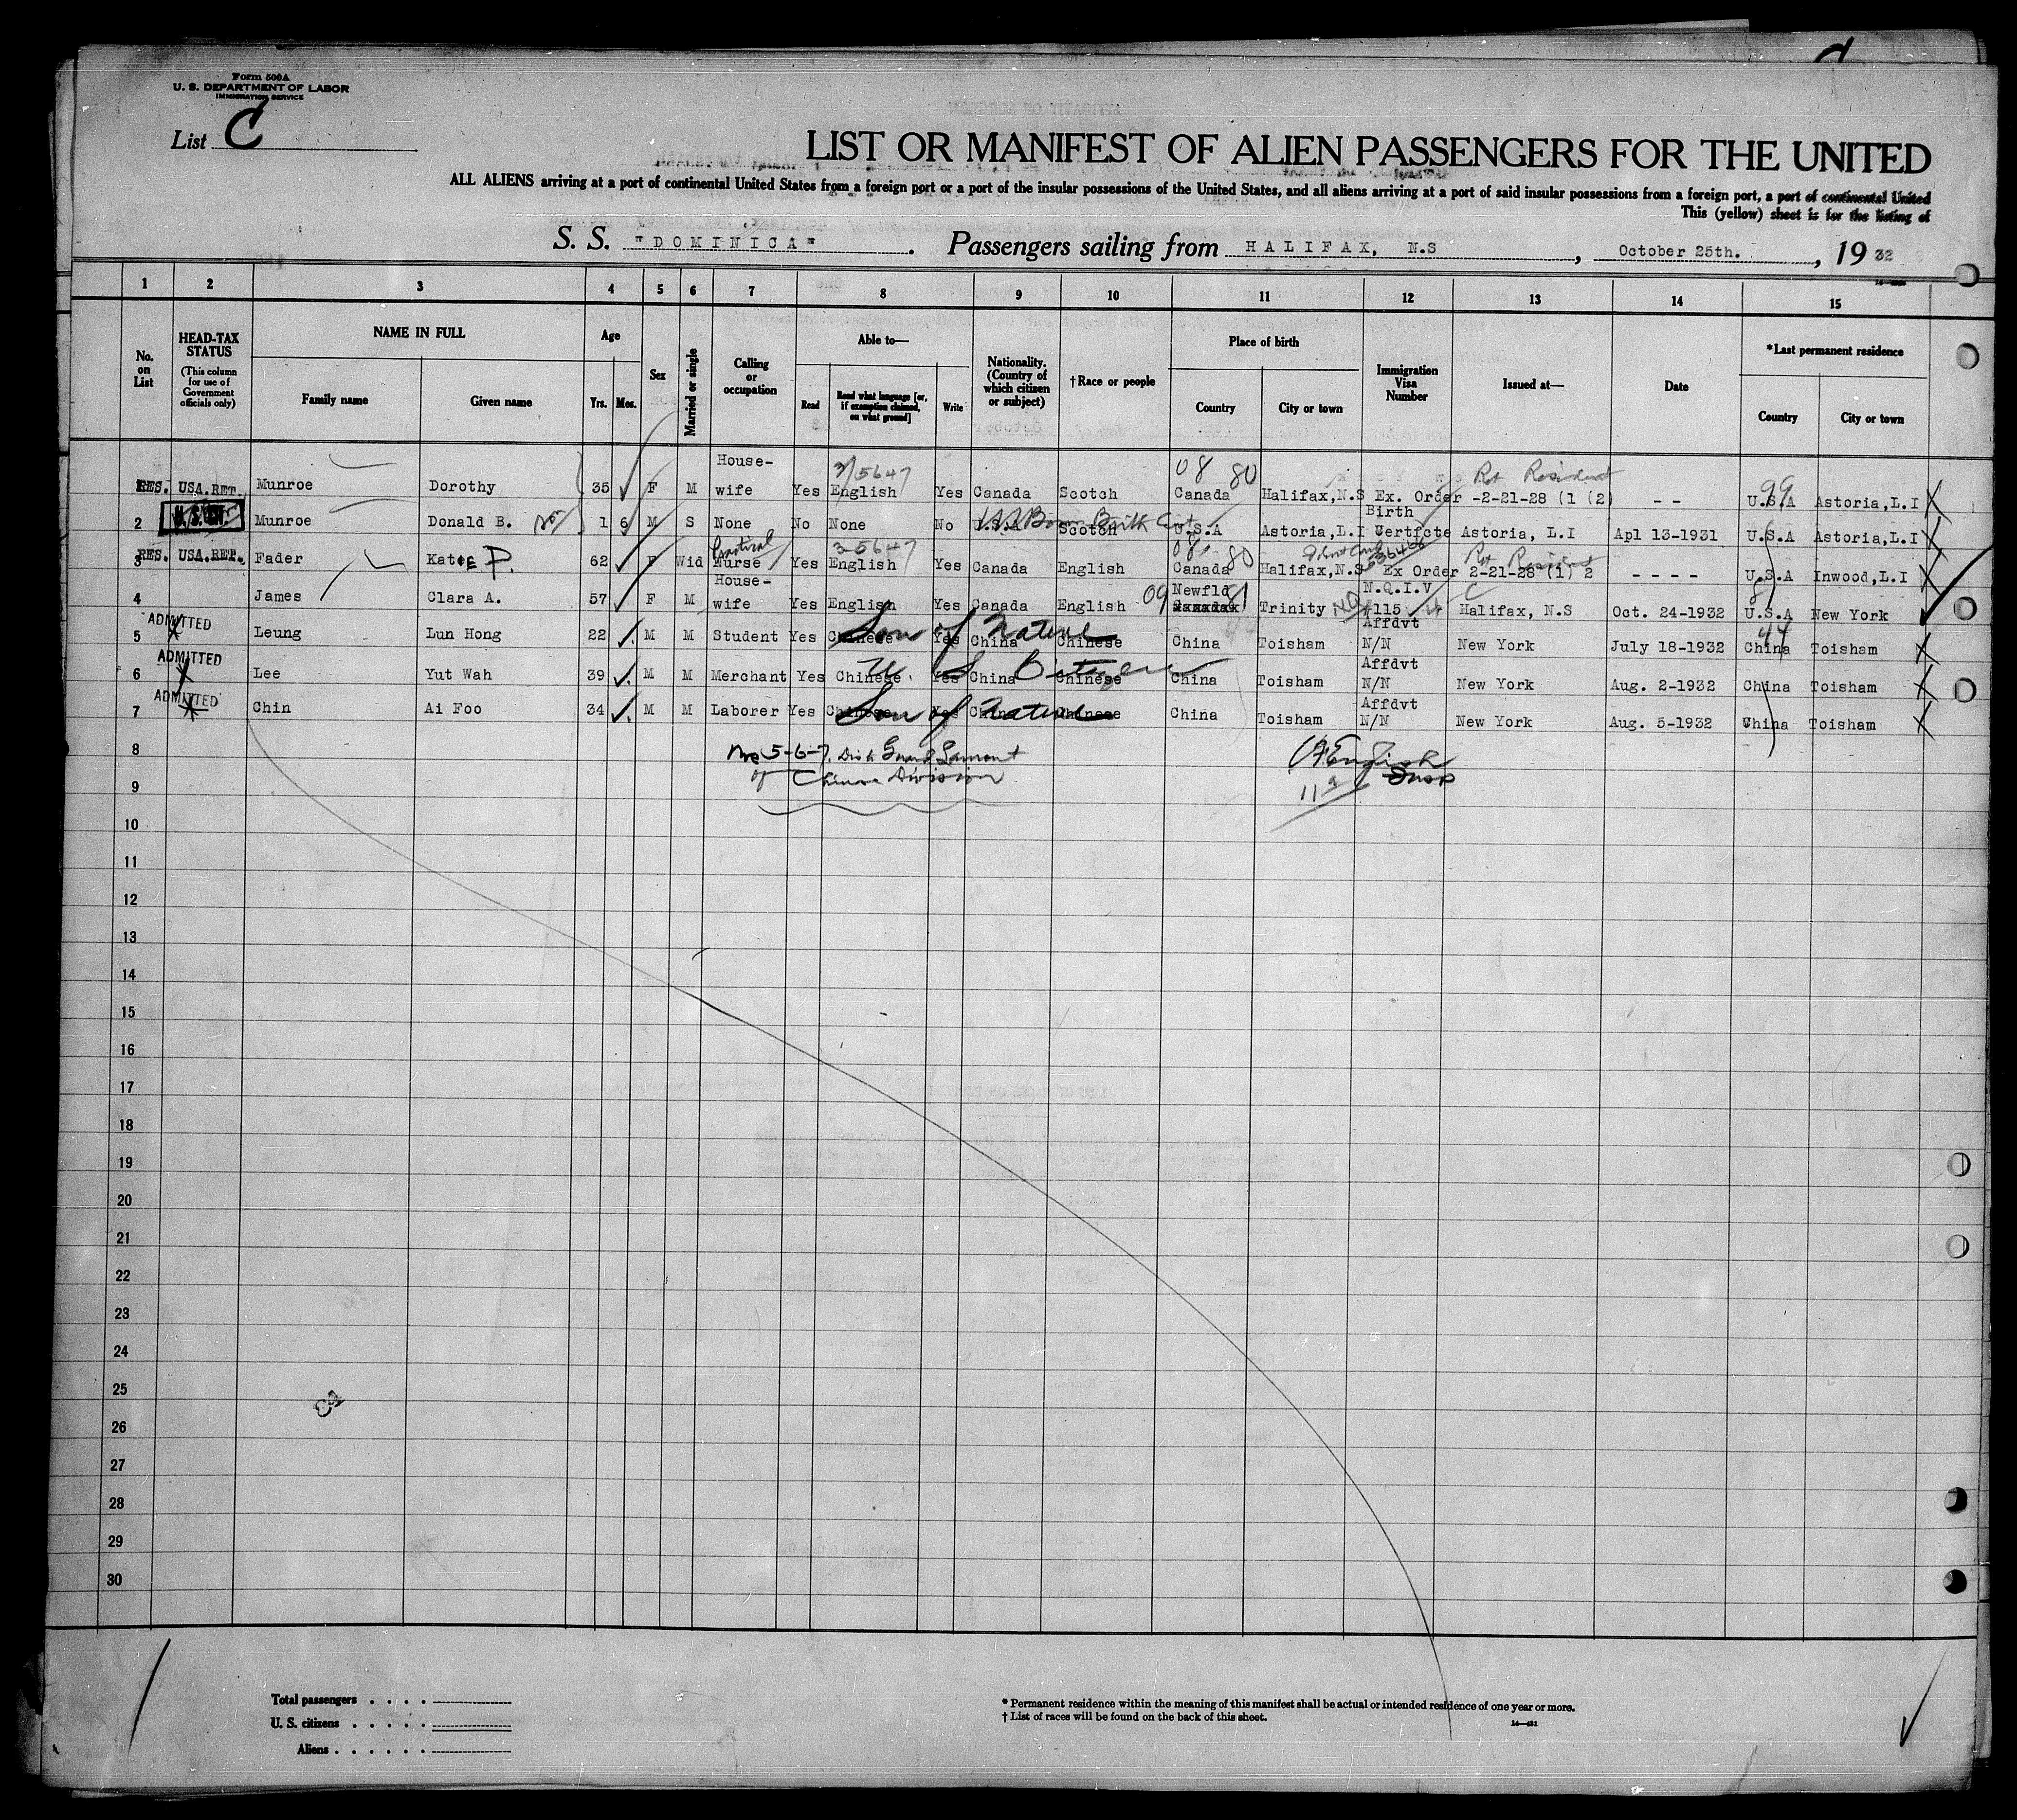 Form 500A
U. S. DEPARTMENT OF LABOR
IMMIGRATION SERVICE
List C
LIST OR MANIFEST OF ALIEN PASSENGERS FOR THE UNITED
ALL ALIENS arriving at a port of continental United States from a foreign port or a port of the insular possessions of the United States, and all aliens arriving at a port of said insular possessions from a foreign port, a port of continental United
This (yellow) sheet is for the listing of
S. S. "DOMINICA". Passengers sailing from HALIFAX, N.S, October 25th., 1932
1 2 3 4 5 6 7 8 9 10 11 12 13 14 15
No. on List
HEAD-TAX STATUS
(This column for use of Government officials only)
NAME IN FULL
Family name Given name
Age
Yrs. Mos.
Sex
Married or single
Calling or occupation
Able to—
Read
Read what language [or, if exemption claimed, on what ground]
Write
Nationality. (Country of which citizen or subject)
†Race or people
Place of birth
Country City or town
Immigration Visa Number
Issued at—
Date
*Last permanent residence
Country City or town
3/5647 08 80 Ret Resident 99
1 RES. USA.RET. Munroe Dorothy 35 F M House-wife Yes English Yes Canada Scotch Canada Halifax,N.S Ex. Order -2-21-28 (1 (2) - - U.S.A Astoria,L.I
2 Munroe Donald B. son 1 6 M S None No None No U.S.A Scotch U.S.A Astoria,L.I Birth Certfcte Astoria, L.I Apl 13-1931 U.S.A Astoria,L.I
35647 08 80 Ret Resident
3 RES. USA.RET. Fader Kate P. 62 F Wid Practical Nurse Yes English Yes Canada English Canada Halifax,N.S Ex Order 2-21-28 (1) 2 - - - - U.S.A Inwood,L.I
4 James Clara A. 57 F M House-wife Yes English Yes Canada English 09 Newfld 81 Trinity N.Q.I.V #115 Halifax, N.S Oct. 24-1932 U.S.A New York
5 ADMITTED Leung Lun Hong 22 M M Student Yes Chinese Yes China Chinese China Toisham Affdvt N/N New York July 18-1932 China Toisham
Son of Native 44
6 ADMITTED Lee Yut Wah 39 M M Merchant Yes Chinese Yes China Chinese China Toisham Affdvt N/N New York Aug. 2-1932 China Toisham
U S Citizen
7 ADMITTED Chin Ai Foo 34 M M Laborer Yes Chinese Yes China Chinese China Toisham Affdvt N/N New York Aug. 5-1932 China Toisham
Son of Native
8
Nos 5-6-7.
of Chinese Division
English
Insp
9
10
11
12
13
14
15
16
17
18
19
20
21
22
23
24
25
26
27
28
29
30
Total passengers . . . .
U. S. citizens . . . . .
Aliens . . . . . .
* Permanent residence within the meaning of this manifest shall be actual or intended residence of one year or more.
† List of races will be found on the back of this sheet.